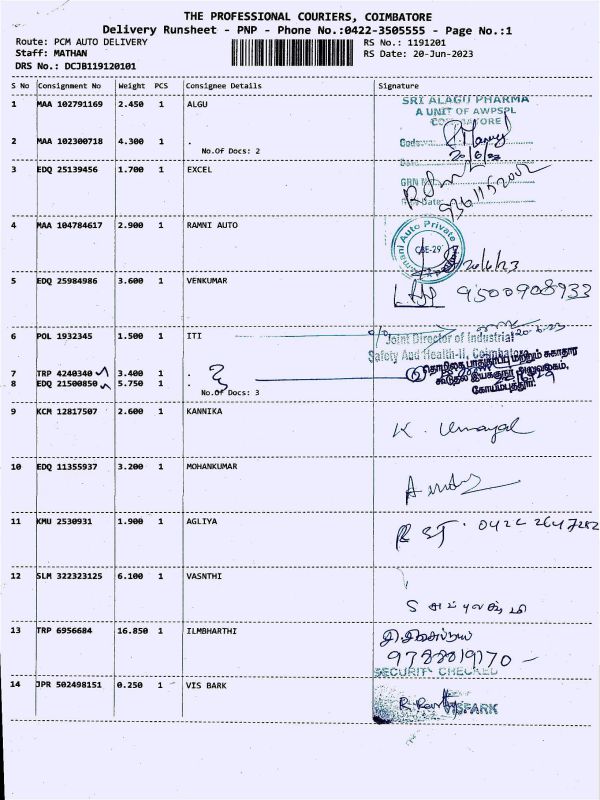 THE PROFESSIONAL COURIERS, COIMBATORE
Delivery Runsheet - PNP - Phone No.:0422-3505555 - Page No.:1
Route: PCM AUTO DELIVERY
RS No.: 1191201
Staff: MATHAN
RS Date: 20-Jun-2023
DRS No.: DCJB119120101
S No Consignment No Weight PCS Consignee Details Signature
1 MAA 102791169 2.450 1 ALGU
SRI ALAGU PHARMA
A UNIT OF AWPSPL
COIMBATORE
2 MAA 102300718 4.300 1 .
No.Of Docs: 2
Code
20/6/23
Date
3 EDQ 25139456 1.700 1 EXCEL
GRN No
9361152002
4 MAA 104784617 2.900 1 RAMNI AUTO
Ramani Auto Private
CBE-29
20/6/23
5 EDQ 25984986 3.600 1 VENKUMAR
9500908933
6 POL 1932345 1.500 1 ITI
20-6-23
Joint Director of Industrial
Safety And Health-II, Coimbatore
7 TRP 4240340 3.400 1 .
8 EDQ 21500850 5.750 1 .
No.Of Docs: 3
கோயம்புத்தூர்.
9 KCM 12817507 2.600 1 KANNIKA
K. Umayal
10 EDQ 11355937 3.200 1 MOHANKUMAR
11 KMU 2530931 1.900 1 AGLIYA
0422 2647282
12 SLM 322323125 6.100 1 VASNTHI
13 TRP 6956684 16.850 1 ILMBHARTHI
9788819170
SECURITY CHECKED
14 JPR 502498151 0.250 1 VIS BARK
VISPARK